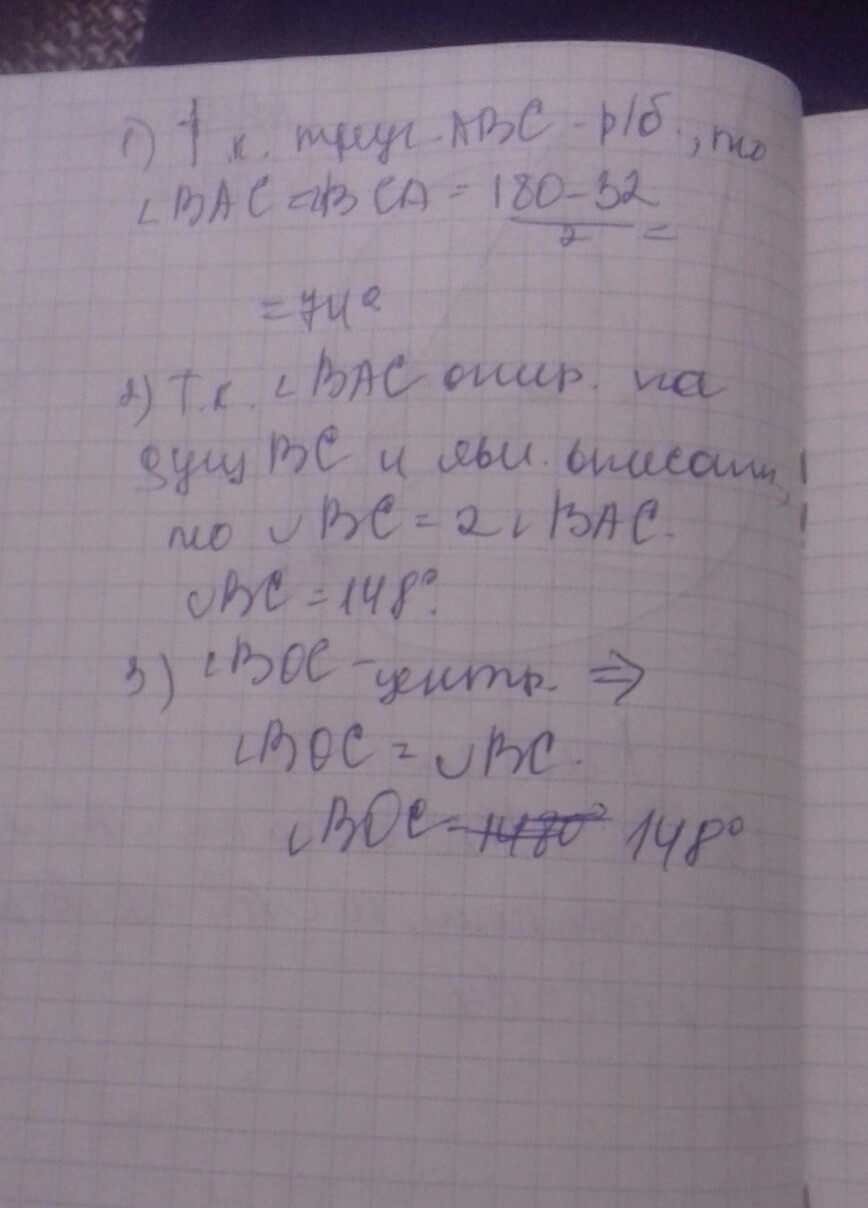 1) Т.к. треуг. ABC - р/б., то
∠BAC = ∠BCA = (180-32)/2 =
= 74°
2) Т.к. ∠BAC опир. на
дугу BC и явл. вписанн,
то ∪BC = 2∠BAC.
∪BC = 148°.
3) ∠BOC - центр. ⇒
∠BOC = ∪BC.
∠BOC = 148°